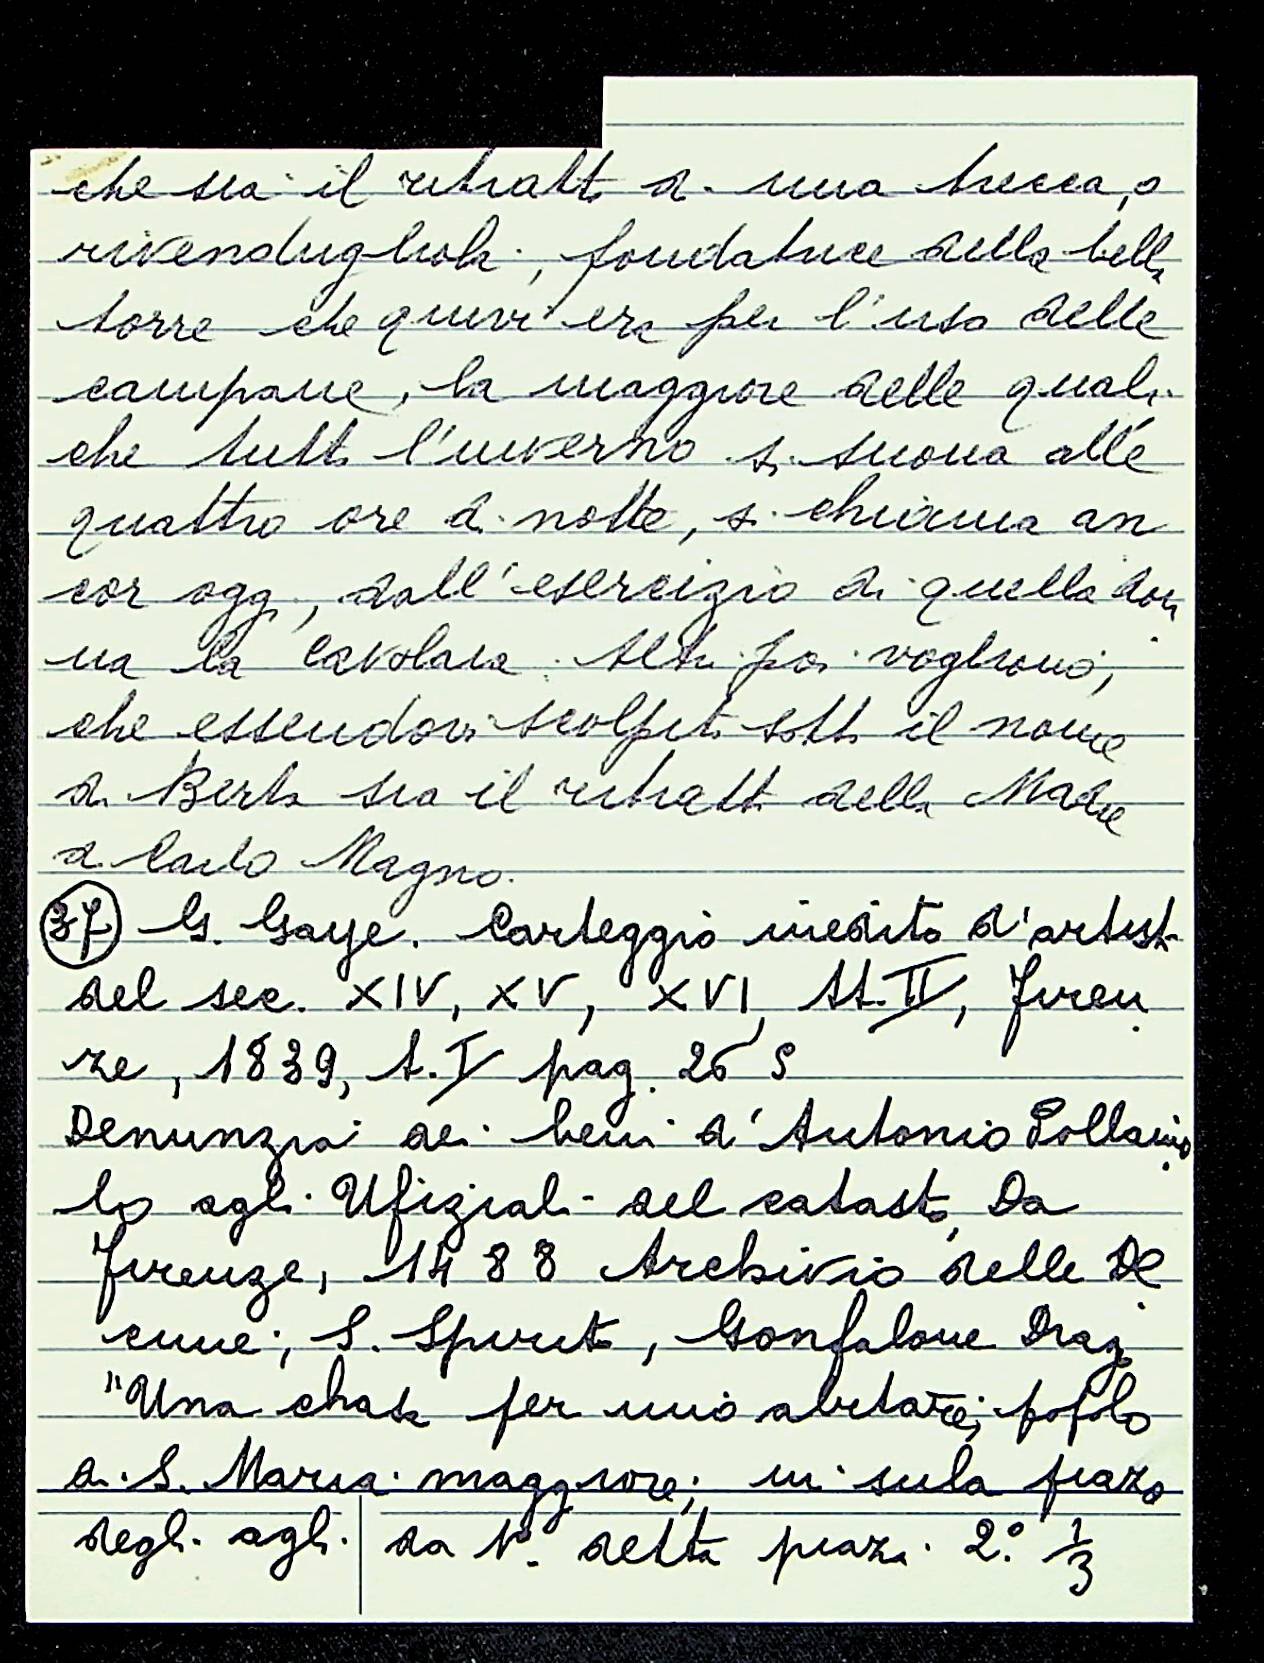 che sia il ritratto di una trecca, o
rivendugliola, fondatrice della bella
torre che quivi era per l'uso delle
campane, la maggiore delle quali
che tutto l'inverno si suona alle
quattro ore di notte, si chiama an
cor oggi, dall'esercizio di quella don
na la Cavolaia. Altri poi vogliono,
che essendovi scolpito sotto il nome
di Berta sia il ritratto della Madre
di Carlo Magno.
37) G. Gaye. Carteggio inedito d'artisti
del sec. XIV, XV, XVI, tt. II, Firen
ze, 1839, t. I pag. 265
Denunzia dei beni d'Antonio Pollaiuo
lo agli Ufiziali del catasto, Da
Firenze, 1488 Archivio delle De
cime; S. Spirito, Gonfalone Drag.
"Una chasa per mio abitare; popolo
di S. Maria maggiore; in sula piaza
degli agli. da 1° detta piaza. 2° 1/3